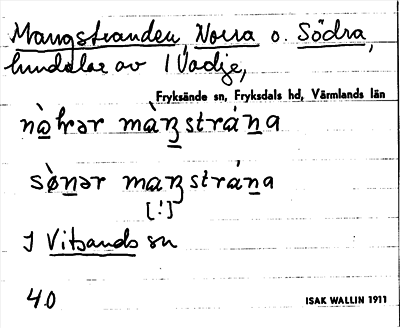 Mangstranden, Norra o. Södra,
hundelar av 1 Vadje,
Fryksände sn, Fryksdals hd, Värmlands län
nò̱hrər màŋstráṉa
sø̀ṉər maŋstráṉa
[!]
I Vitsands sn
40
ISAK WALLIN 1911